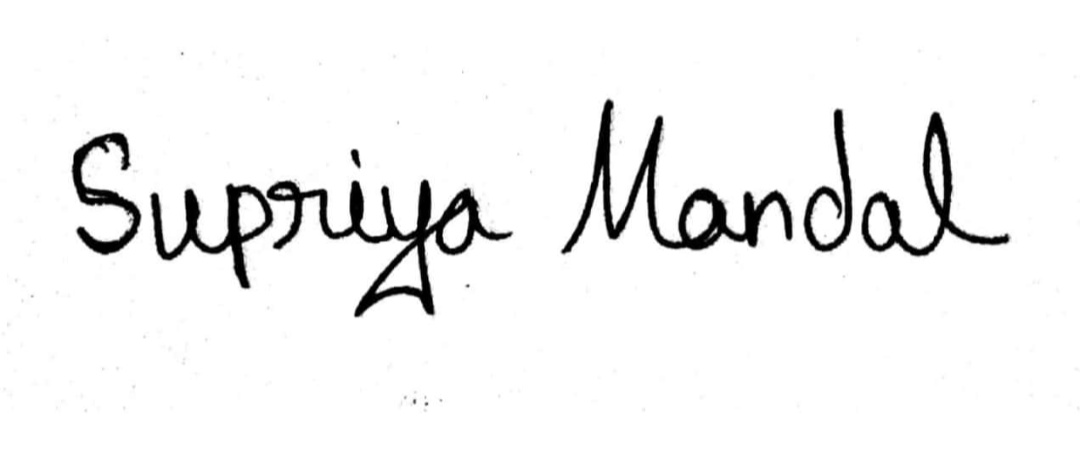 Supriya Mandal